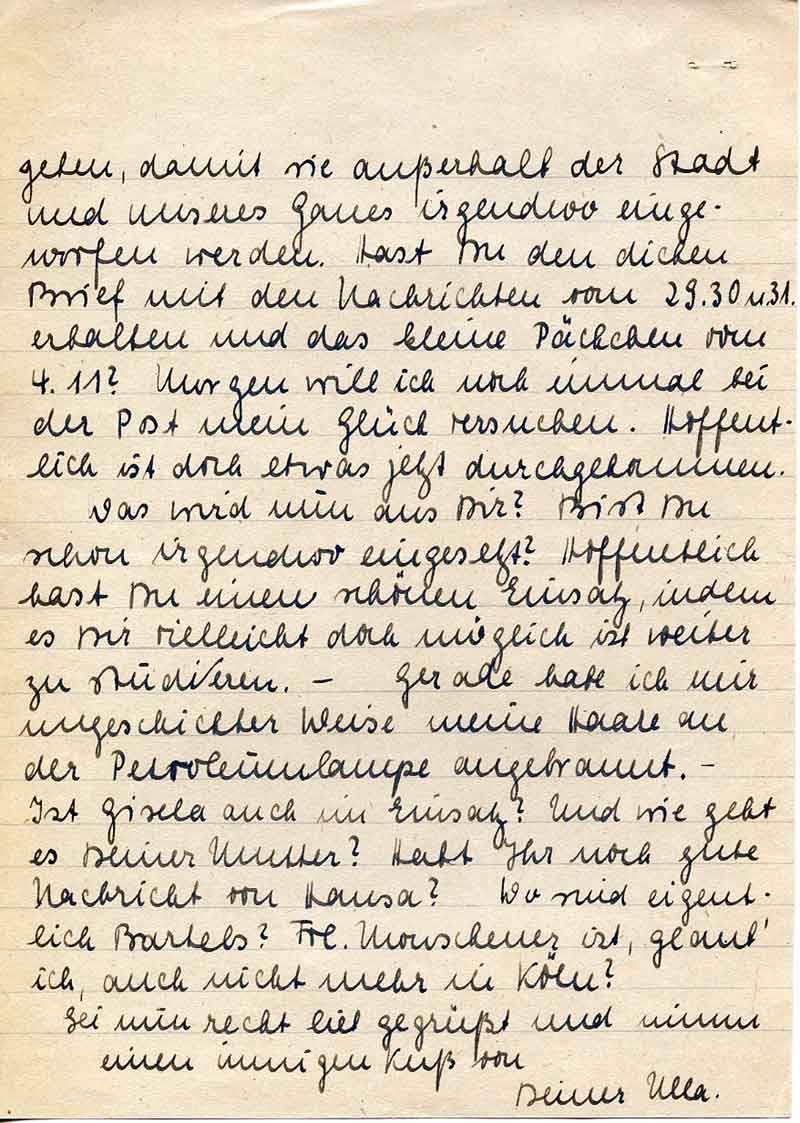 geben, damit sie außerhalb der Stadt
und unseres Gaues irgendwo einge-
worfen werden. Hast Du den dicken
Brief mit den Nachrichten vom 29. 30 u. 31.
erhalten und das kleine Päckchen vom
4. 11? Morgen will ich noch einmal bei
der Post mein Glück versuchen. Hoffent-
lich ist doch etwas jetzt durchgekommen.
Was wird nun aus Dir? Bist Du
schon irgendwo eingesetzt? Hoffentlich
hast Du einen schönen Einsatz, indem
es Dir vielleicht doch möglich ist weiter
zu studieren. – Gerade habe ich mir
ungeschickter Weise meine Haare an
der Petroleumlampe angebrannt. –
Ist Gisela auch im Einsatz? Und wie geht
es Deiner Mutter? Habt Ihr noch gute
Nachricht von Hansa? Wo sind eigent-
lich Bartels? Frl. ist, glaub'
ich, auch nicht mehr in Köln?
Sei nun recht lieb gegrüßt und nimm
einen innigen Kuß von
Deiner Ulla.